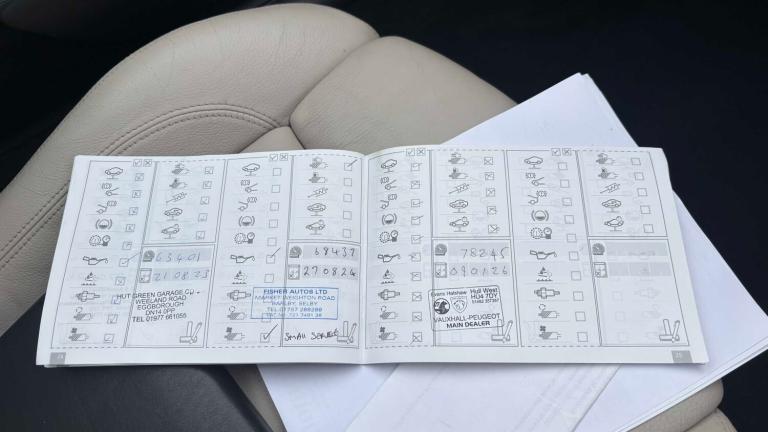 63401
21 08 23
HUT GREEN GARAGE
WEELAND ROAD
EGGBOROUGH
DN14 0PP
TEL 01977 661055
24
68437
27 08 24
FISHER AUTOS LTD
MARKET WEIGHTON ROAD
BARLBY, SELBY
SMALL SERVICE
78245
090126
Evans Halshaw
Hull West
HU4 7DY
VAUXHALL-PEUGEOT
MAIN DEALER
25